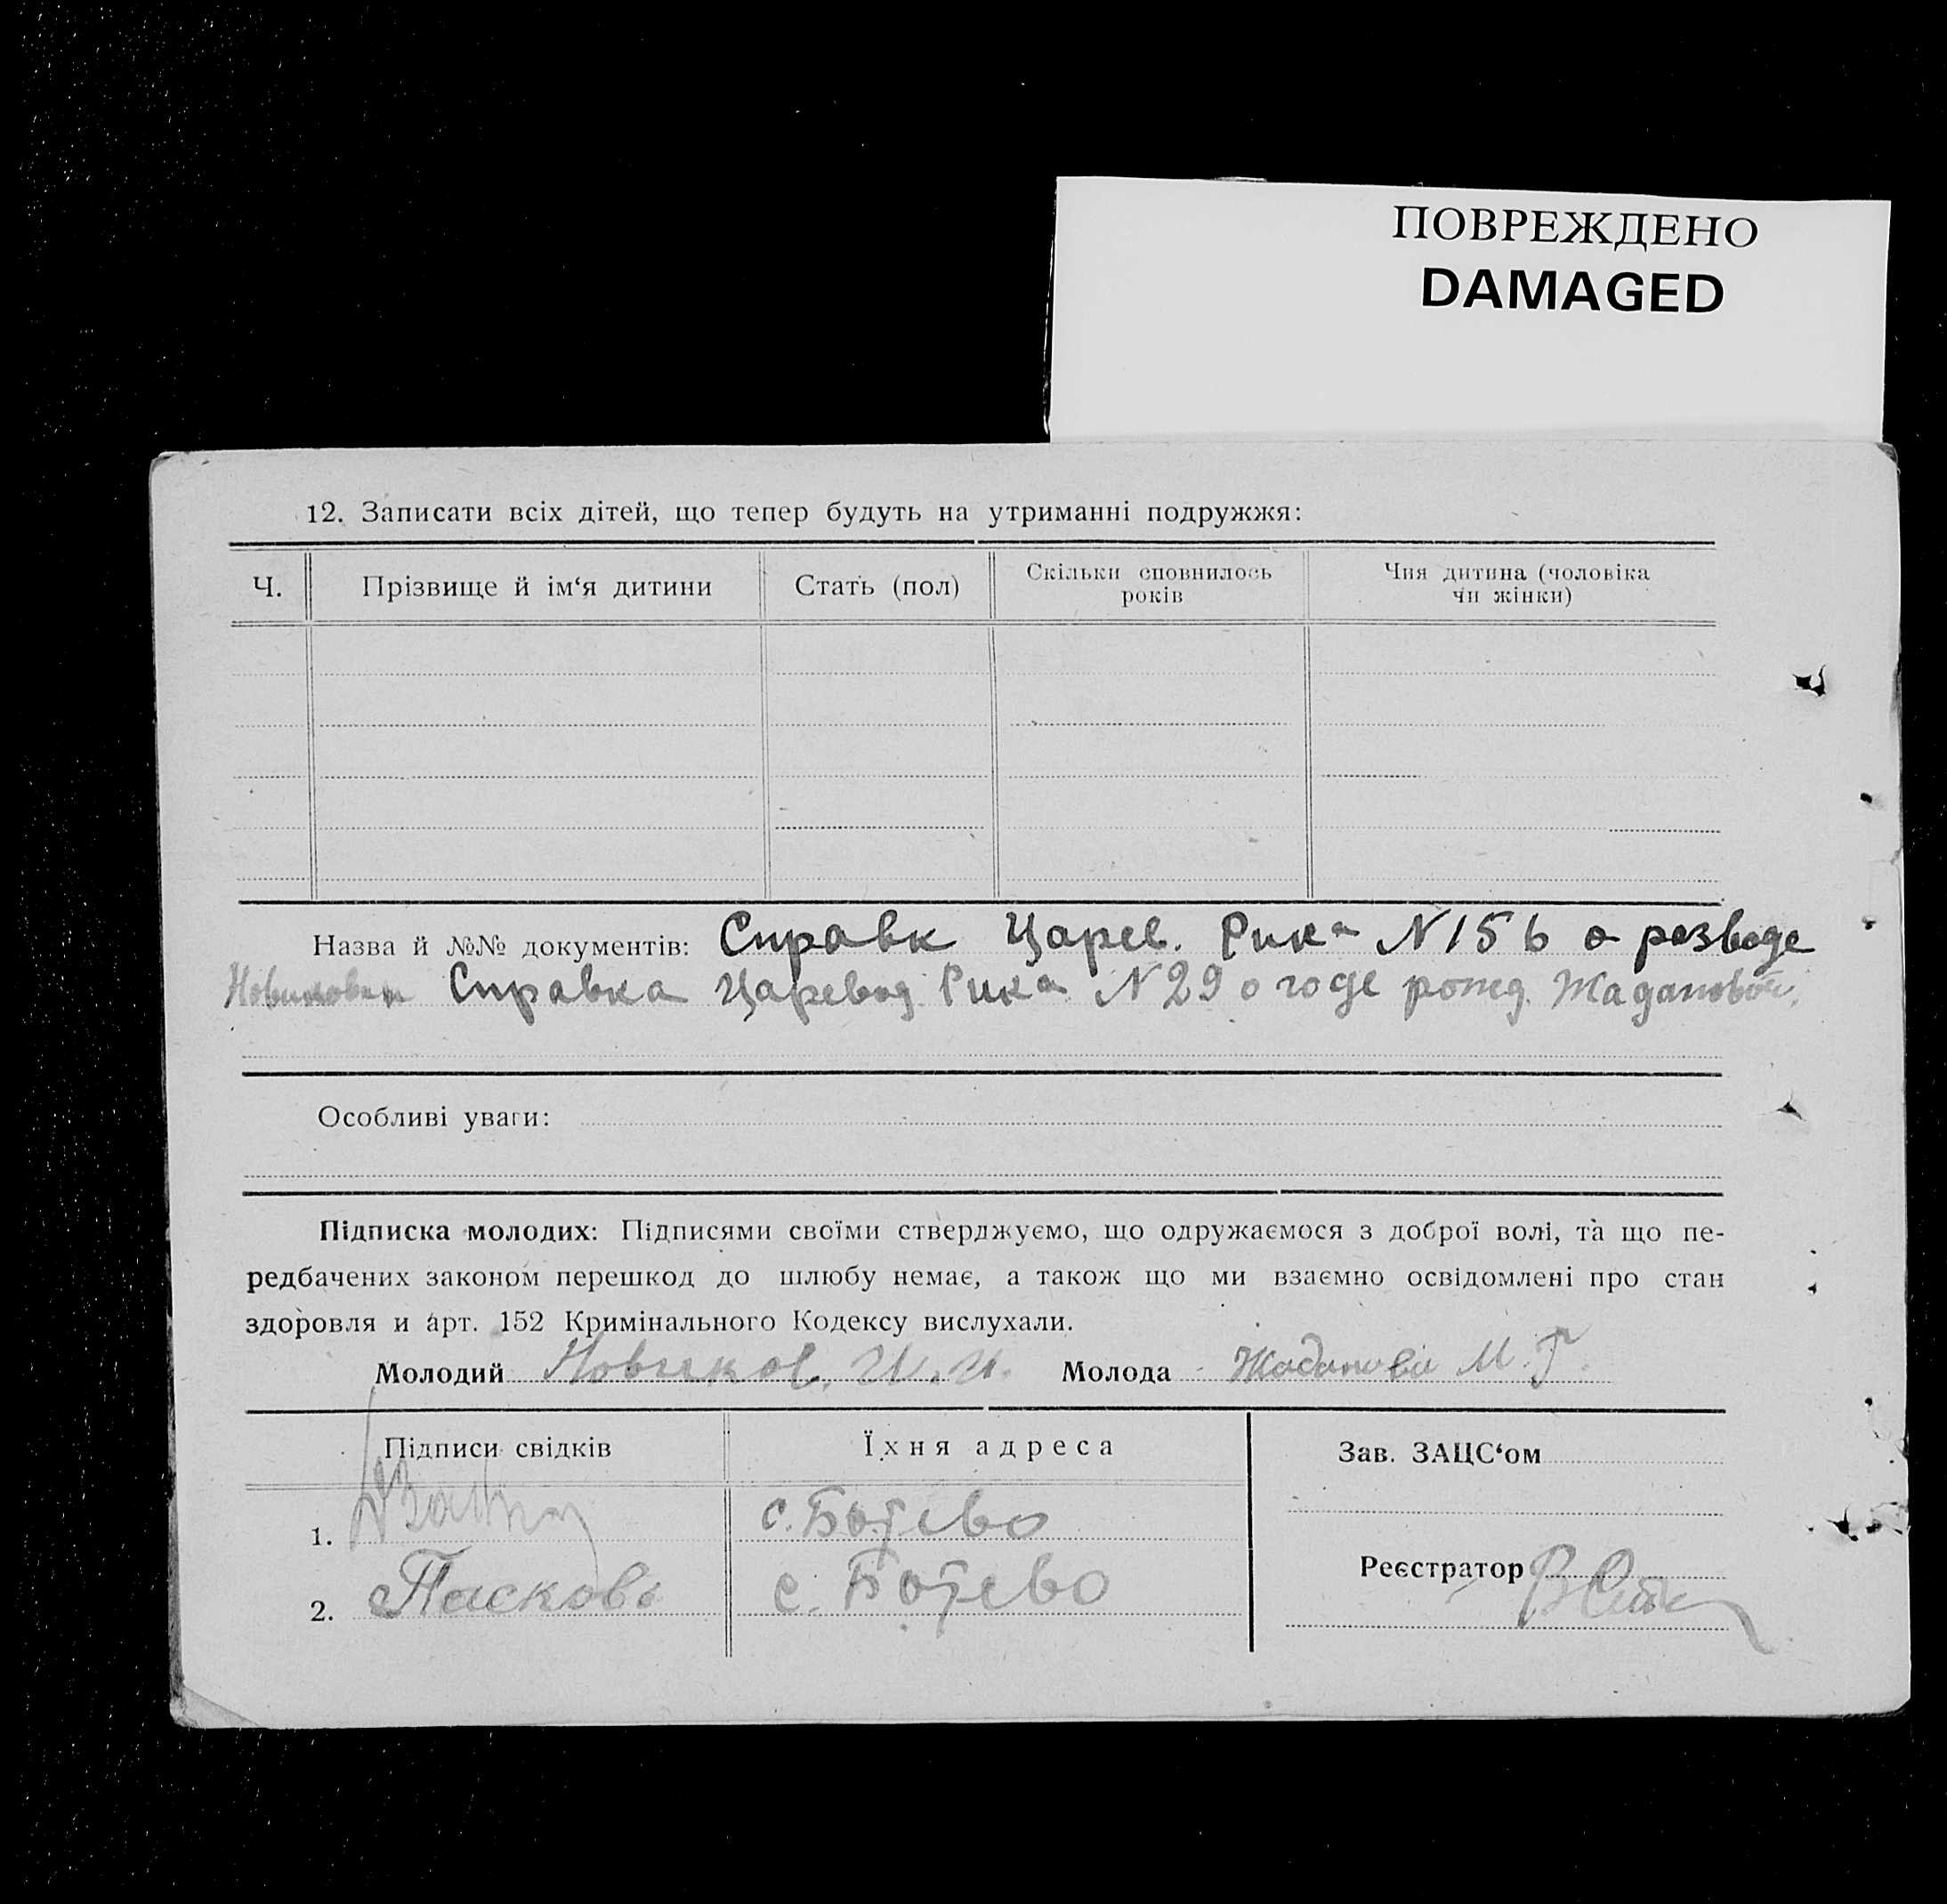 ПОВРЕЖДЕНО
DAMAGED
12. Записати всіх дітей, що тепер будуть на утриманні подружжя:
Ч.
Прізвище й ім‘я дитини
Стать (пол)
Скільки сповнилось
років
Чия дитина (чоловіка
чи жінки)
Назва й №№ документів: Справк Царев. Рика N 156 о розводе
Справка Царевод. Рика N 29 о годе рожд. Жадановой
Особливі уваги:
Підписка молодих: Підписями своїми стверджуємо, що одружаємося з доброї волі, та що пе-
редбачених законом перешкод до шлюбу немає, а також що ми взаємно освідомлені про стан
здоровля и арт. 152 Кримінального Кодексу вислухали.
Молодий Новиков. И. И. Молода Жаданова М. Г.
Підписи свідків
Їхня адреса
Зав. ЗАЦС‘ом
1.
с. Ботево
Реєстратор
2. Пасковь
с. Ботево